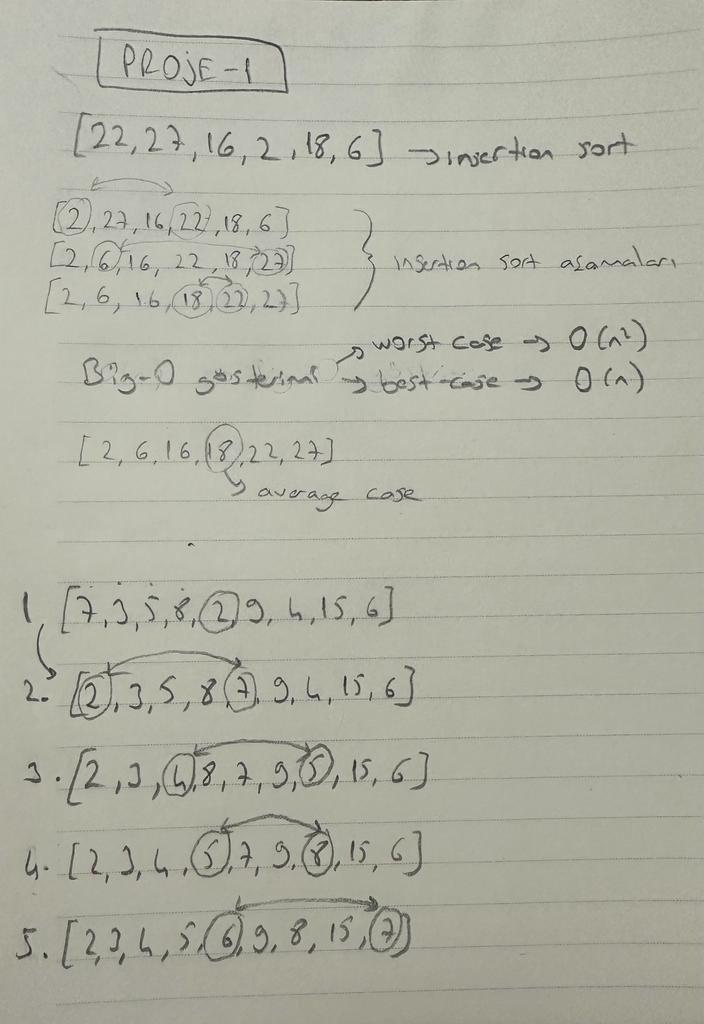 PROJE-1
[22, 27, 16, 2, 18, 6] → insertion sort
[2, 27, 16, 22, 18, 6]
[2, 6, 16, 22, 18, 27]
[2, 6, 16, 18, 22, 27]
insertion sort aşamaları
Big-O gösterimi
→ worst case → O(n²)
→ best-case → O(n)
[2, 6, 16, 18, 22, 27]
→ average case
1 [7, 3, 5, 8, 2, 9, 4, 15, 6]
2. [2, 3, 5, 8, 7, 9, 4, 15, 6]
3. [2, 3, 4, 8, 7, 9, 5, 15, 6]
4. [2, 3, 4, 5, 7, 9, 8, 15, 6]
5. [2, 3, 4, 5, 6, 9, 8, 15, 7]